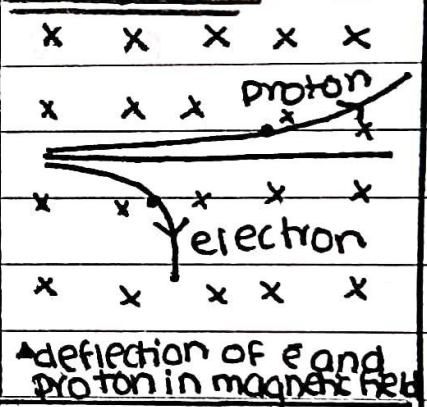 x x x x x
proton
x x x x x
x x x x x
electron
x x x x x
deflection of ē and
proton in magnetic field